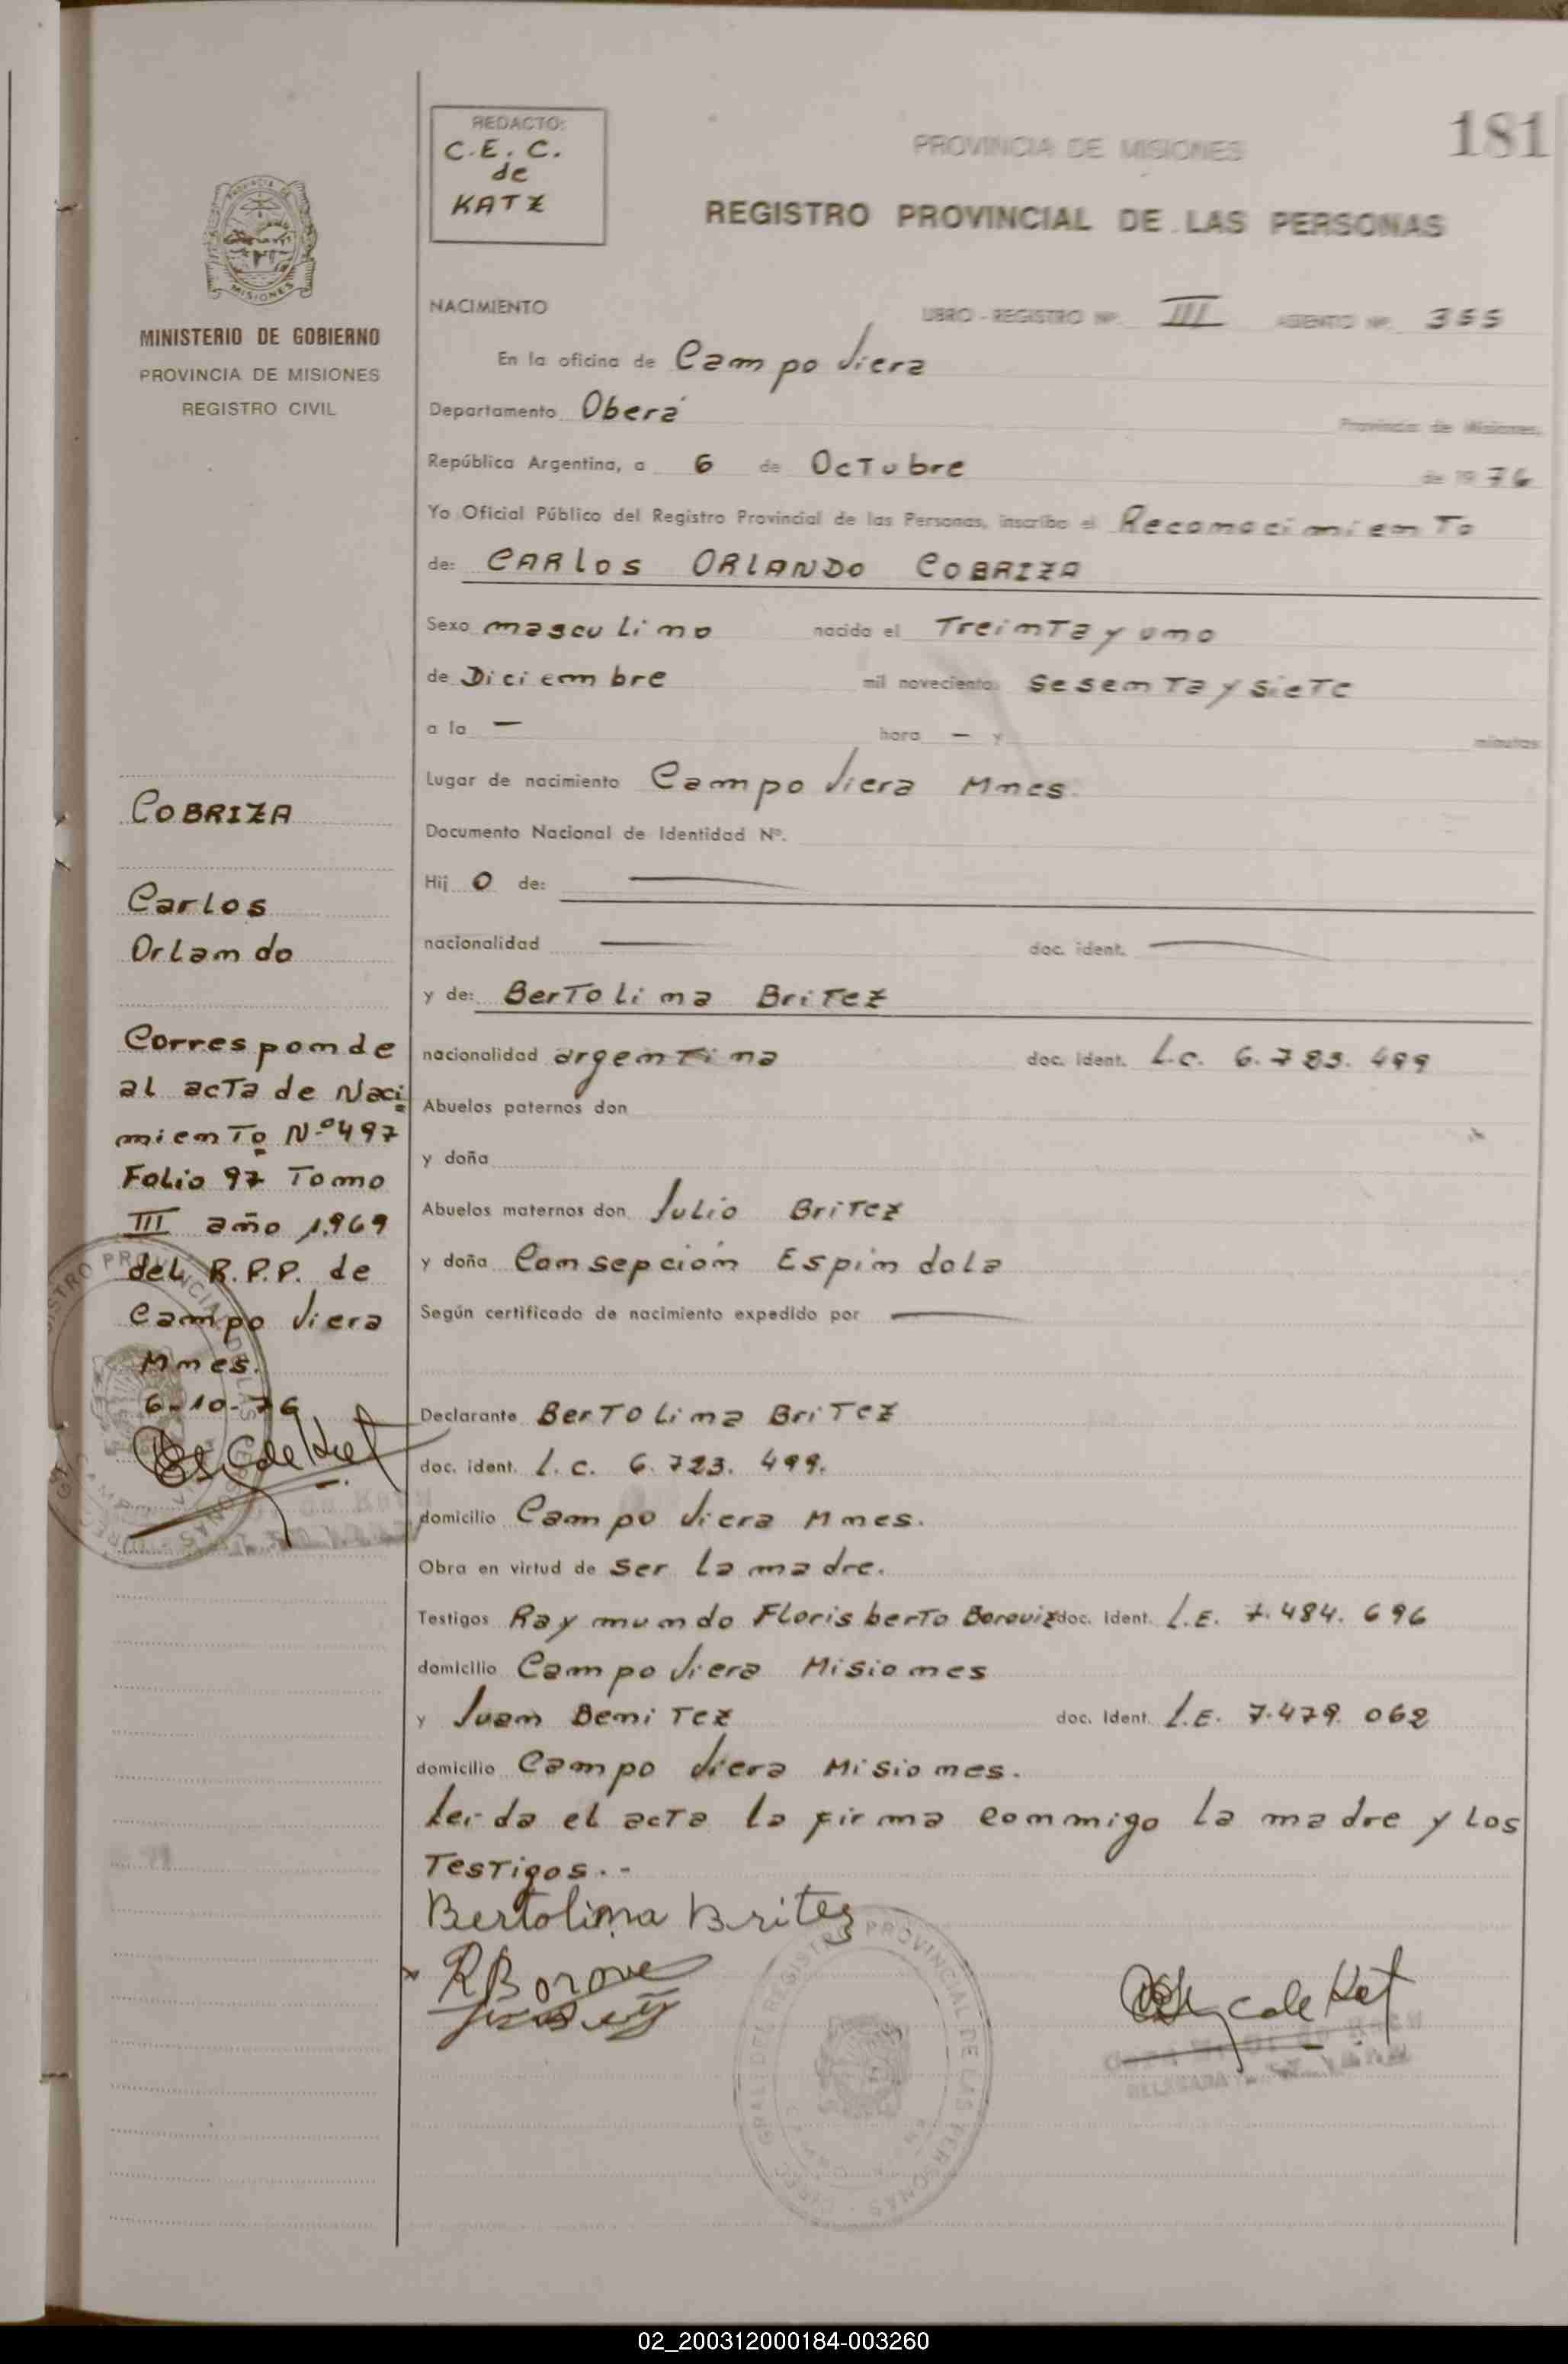 181
REDACTO:
C.E.C.
de
KATZ
PROVINCIA DE MISIONES
REGISTRO PROVINCIAL DE LAS PERSONAS
PROVINCIA DE
MISIONES
MINISTERIO DE GOBIERNO
PROVINCIA DE MISIONES
REGISTRO CIVIL
NACIMIENTO
LIBRO - REGISTRO Nº. III ASIENTO Nº. 355
En la oficina de Campo Viera
Departamento Oberá Provincia de Misiones,
República Argentina, a 6 de Octubre de 1976
Yo Oficial Público del Registro Provincial de las Personas, inscribo el Reconocimiento
de: CARLOS ORLANDO COBRIZA
Sexo masculino nacido el Treinta y uno
de Diciembre mil novecientos sesenta y siete
a la — hora — y minutos
Lugar de nacimiento Campo Viera Mnes.
Documento Nacional de Identidad Nº.
Hij o de: —
nacionalidad — doc. ident. —
y de: Bertolina Britez
nacionalidad argentina doc. ident. L.c. 6.723.499
Abuelos paternos don
y doña
Abuelos maternos don Julio Britez
y doña Consepción Espindola
Según certificado de nacimiento expedido por —
Declarante Bertolina Britez
doc. ident. L.c. 6.723.499.
domicilio Campo Viera Mnes.
Obra en virtud de ser la madre.
Testigos Raymundo Florisberto Boroviz doc. Ident. L.E. 7.484.696
domicilio Campo Viera Misiones
y Juan Benitez doc. Ident. L.E. 7.479.062
domicilio Campo Viera Misiones.
Leida el acta la firma conmigo la madre y los
Testigos.-
Bertolina Britez
R Borove
COBRIZA
Carlos
Orlando
Corresponde
al acta de Naci
miento Nº 497
Folio 97 Tomo
III año 1.969
del R.P.P. de
Campo Viera
Mnes.
6-10-76
REGISTRO PROVINCIAL DE LAS PERSONAS
02_200312000184-003260